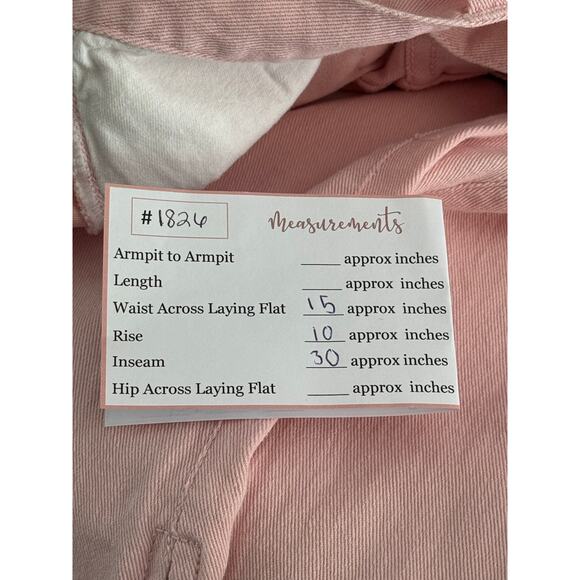 #1826
Measurements
Armpit to Armpit _____ approx inches
Length _____ approx inches
Waist Across Laying Flat 15 approx inches
Rise 10 approx inches
Inseam 30 approx inches
Hip Across Laying Flat _____ approx inches